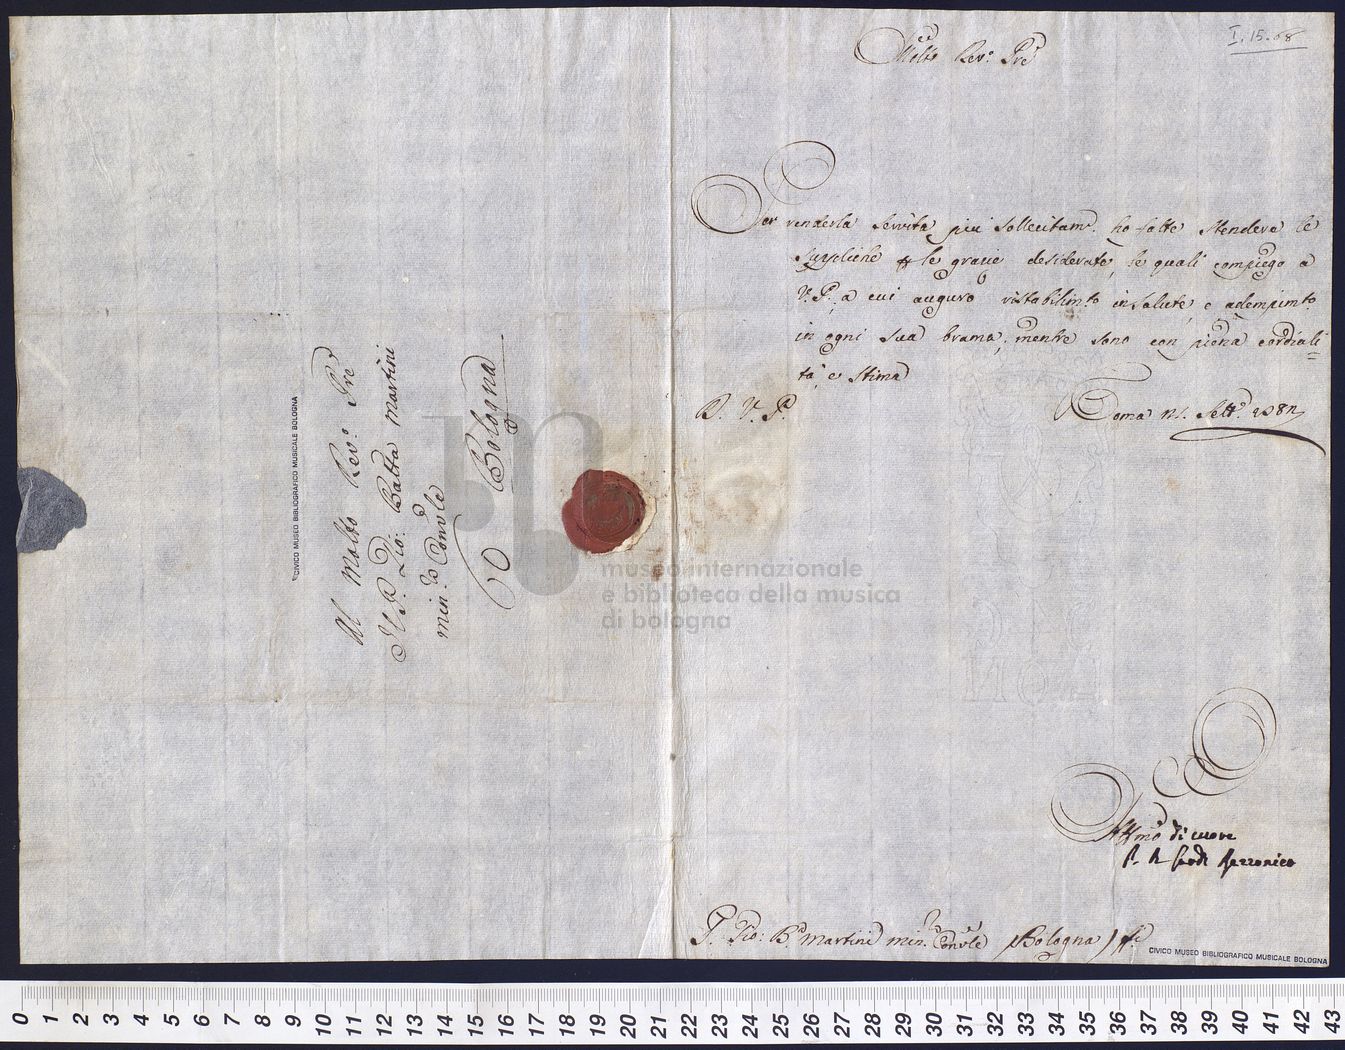 I. 15. 68
Molto Rev.o Pre
Per renderla servita più sollecitam.e ho fatte stendere le
suppliche le grazie desiderate, le quali compiego a
V. P., a cui auguro ristabilim.to in salute, e adempim.to
in ogni sua brama; mentre sono con piena cordiali=
tà, e stima
D. V. P.
Roma
Affmo di cuore
Rezzonico
P. Gio: B.a Martini min. Conv.le Bologna
CIVICO MUSEO BIBLIOGRAFICO MUSICALE BOLOGNA
Al Molto Rev.o Pre
Il P. Gio: Batta Martini
min. Conv.le
Bologna
CIVICO MUSEO BIBLIOGRAFICO MUSICALE BOLOGNA
museo internazionale
e biblioteca della musica
di bologna
0 1 2 3 4 5 6 7 8 9 10 11 12 13 14 15 16 17 18 19 20 21 22 23 24 25 26 27 28 29 30 31 32 33 34 35 36 37 38 39 40 41 42 43